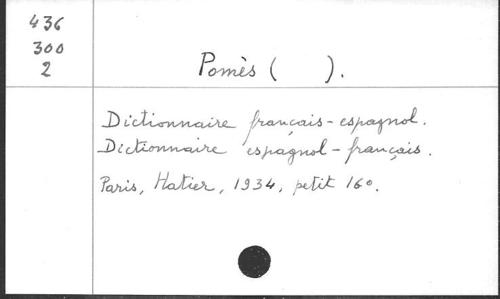 436
300
2
Pomès (      ).
Dictionnaire français-espagnol.
Dictionnaire espagnol-français.
Paris, Hatier, 1934, petit 16°.